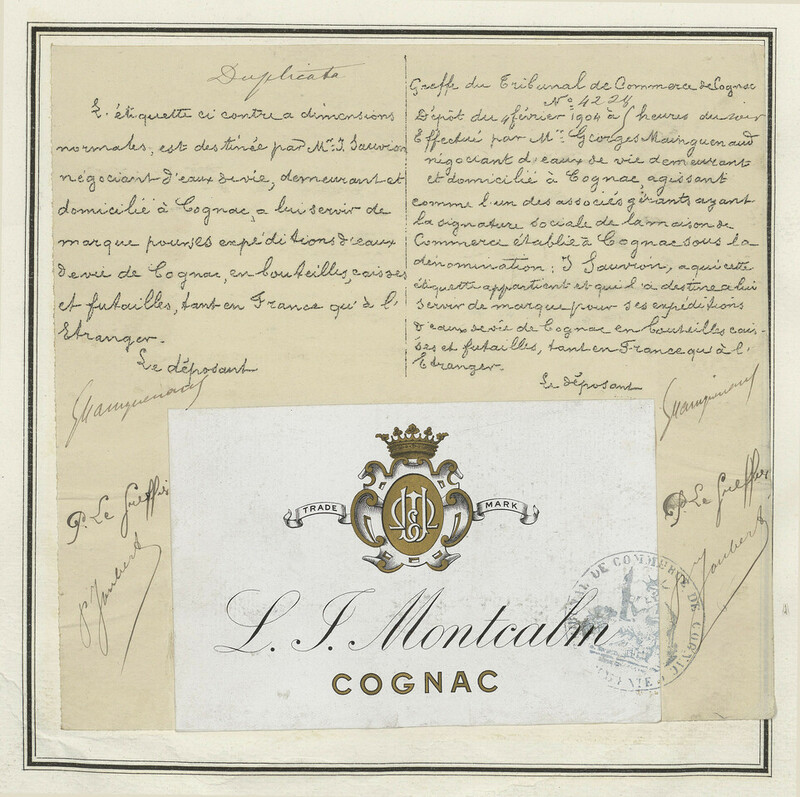 Duplicata
L'étiquette ci contre a dimensions
normales, est destinée par Mr. J. Sauvion
négociant d'eaux de vie, demeurant et
domicilié à Cognac, a lui servir de
marque pour ses expéditions d'eaux
de vie de Cognac, en bouteilles, caisses
et futailles, tant en France qu'à l'
Etranger.
Le déposant
Mainguenaud
P. Le Greffier
P. Joubert
Greffe du Tribunal de Commerce de Cognac
No. 4228
Dépôt du 4 février 1904 à 5 heures du soir
Effectué par Mr. Georges Mainguenaud
négociant d'eaux de vie demeurant
et domicilié à Cognac, agissant
comme l'un des associés gérants ayant
la signature sociale de la maison de
Commerce établie à Cognac sous la
dénomination: J Sauvion, a qui cette
étiquette appartient et qui l'a destine a lui
servir de marque pour ses expéditions
d'eaux de vie de Cognac en bouteilles cais-
ses et futailles, tant en France qu'à l'
Etranger.
Le déposant
Mainguenaud
P. Le Greffier
Joubert
TRADE MARK
L. J. Montcalm
COGNAC
TRIBUNAL DE COMMERCE DE COGNAC